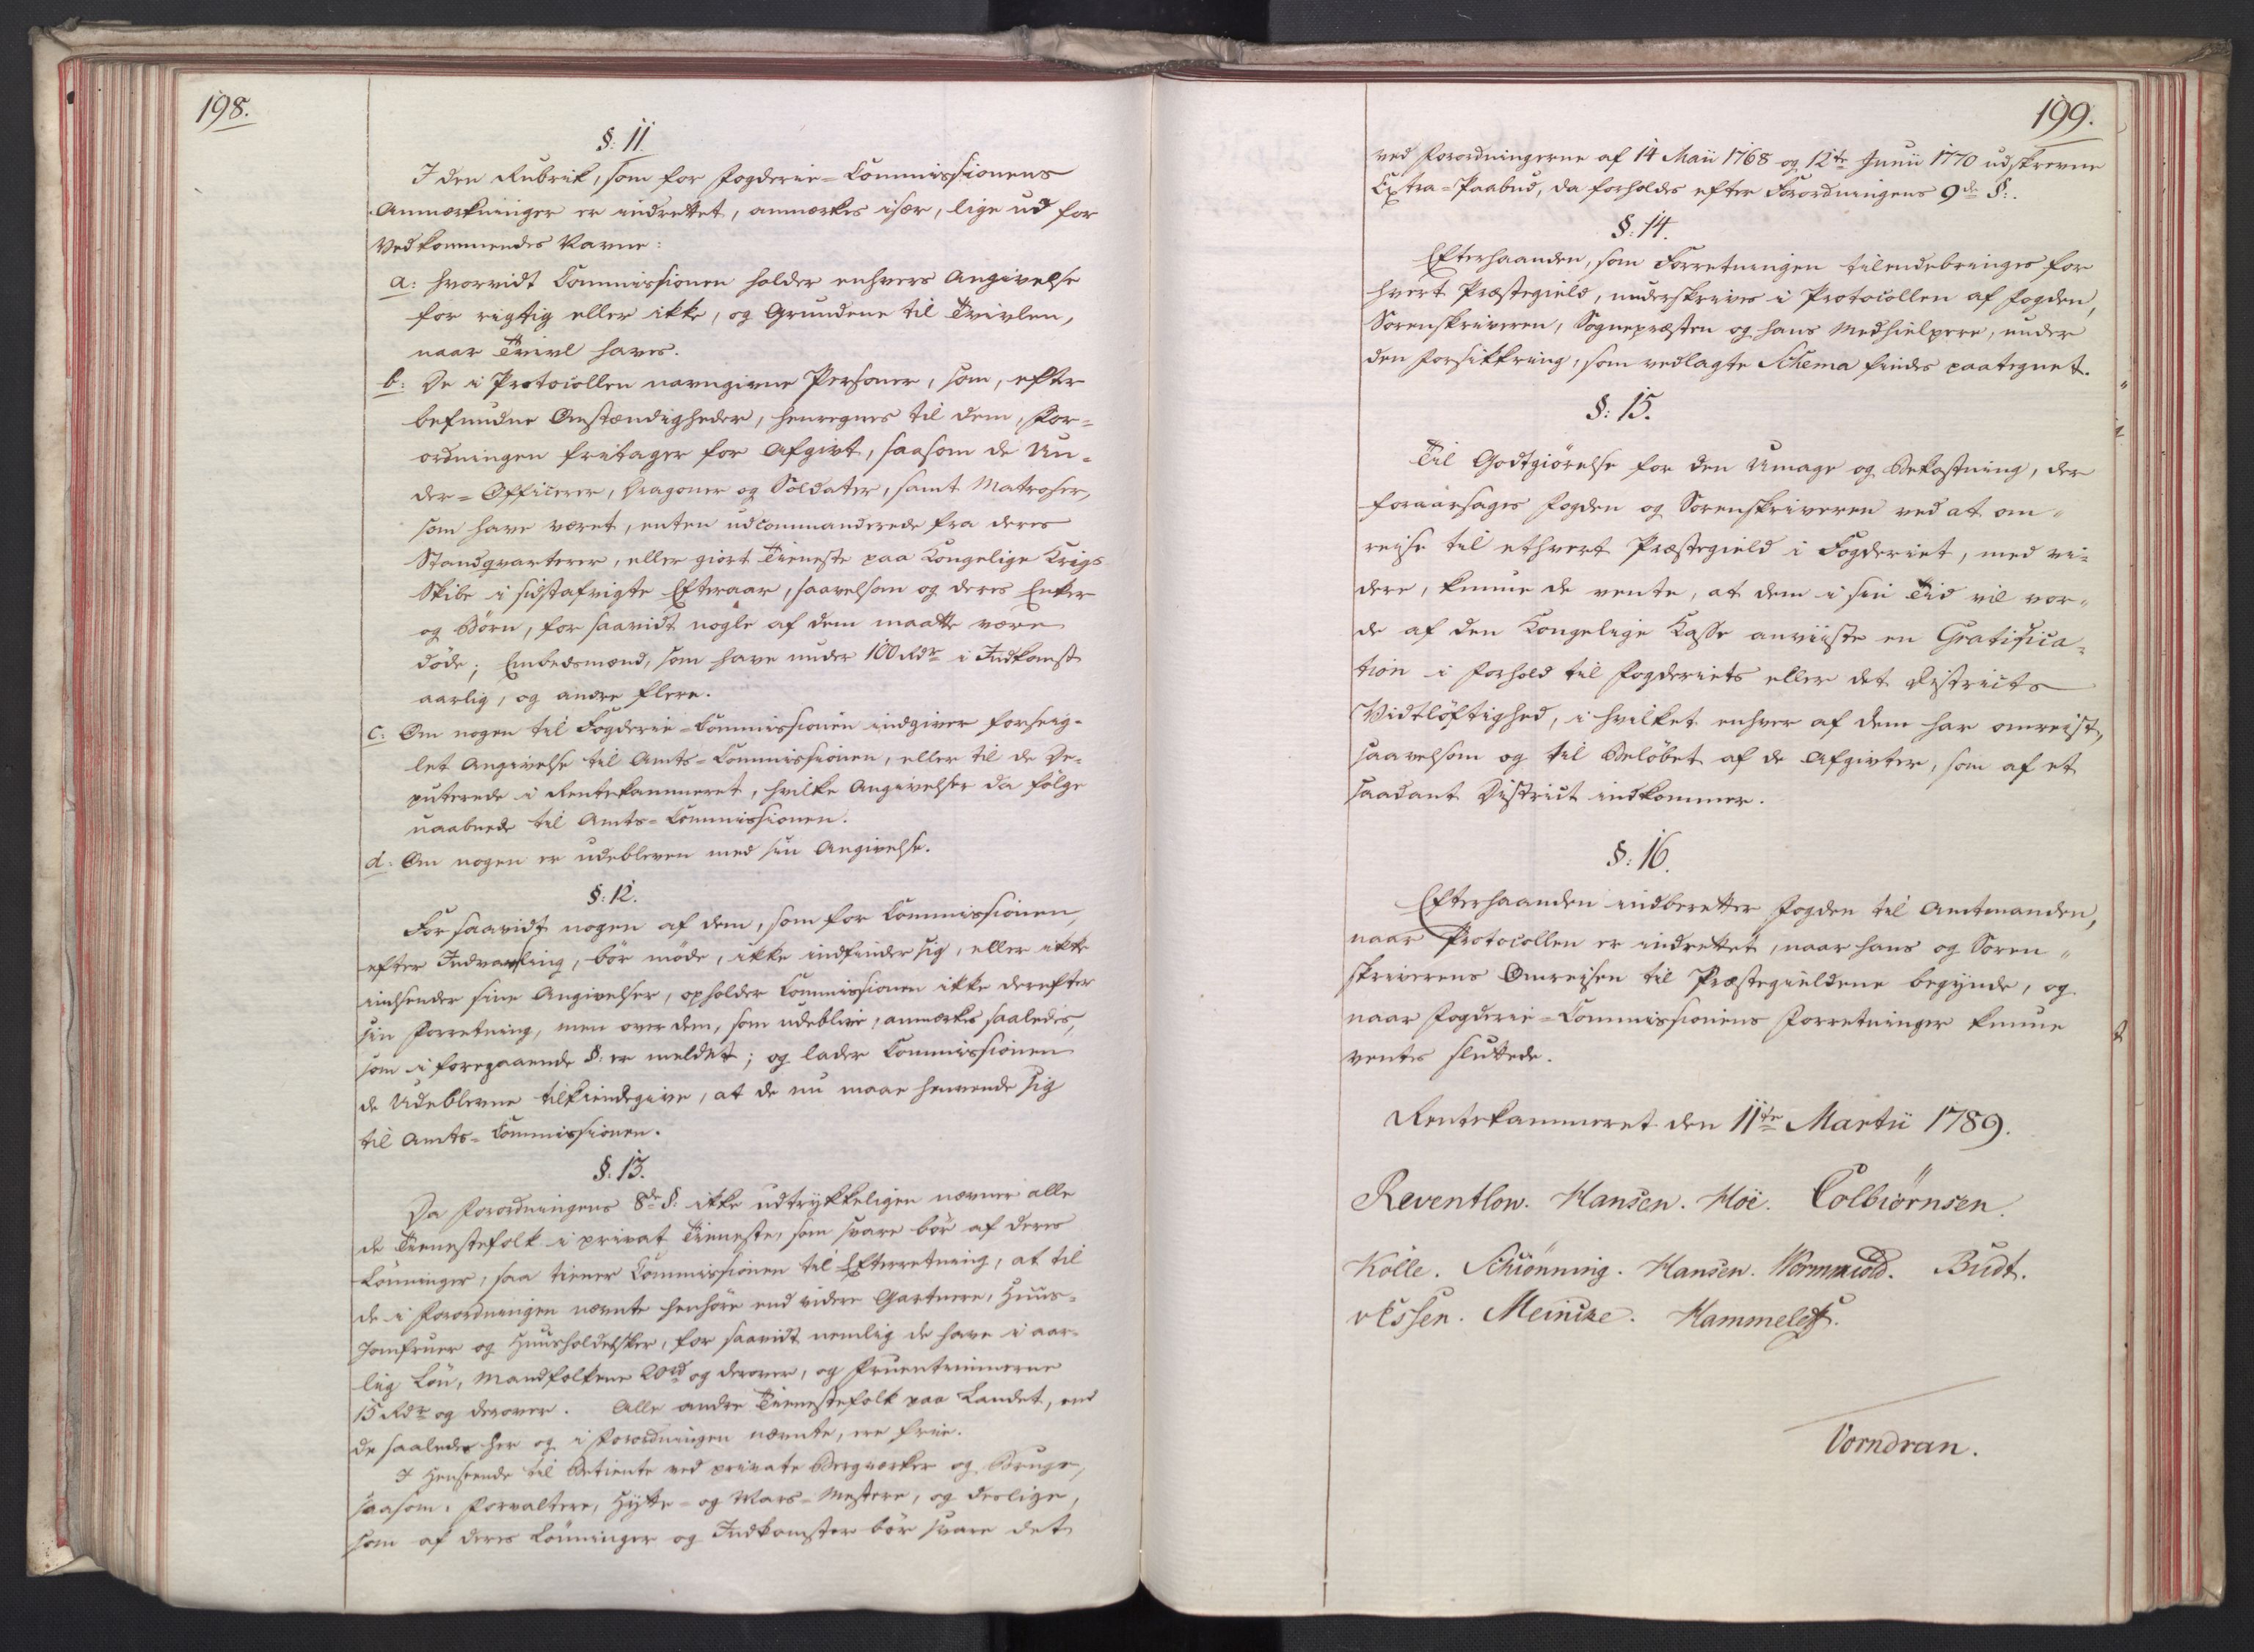 198.
§: 11.
I den Rubrik, som for Fogderie-Commissionens
Anmærkninger er indrettet, anmærkes især, lige ud for
Vedkommendes Navne:
a: hvorvidt Commissionen holder enhvers Angivelse
for rigtig eller ikke, og Grundene til Tvivlen,
naar Tvivl haves.
b: De i Protocollen navngivne Personer, som, efter
befundne Omstændigheder, henregnes til dem, For-
ordningen fritager for Afgivt, saasom de Un-
der-Officerer, Dragoner og Soldater, samt Matroser,
som have været, enten udcommanderede fra deres
Standqvarterer, eller giort Tieneste paa Kongelige Krigs
Skibe i sidstafvigte Efteraar, saavelsom og deres Enker
og Børn, for saavidt nogle af dem maatte være
døde; Embedsmænd, som have under 100 Rdr i Indkomst
aarlig, og andre flere.
c: Om nogen til Fogderie-Commissionen indgiver forseig-
let Angivelse til Amts-Commissionen, eller til de De-
puterede i Rentekammeret, hvilke Angivelser da følge
uaabnede til Amts-Commissionen.
d: Om nogen er udebleven med sin Angivelse.
§: 12.
For saavidt nogen af dem, som for Commissionen,
efter Indvarsling, bör møde, ikke indfinder sig, eller ikke
indsender sine Angivelser, opholder Commissionen ikke derefter
sin Forretning, men over dem, som udeblive, anmærkes saaledes,
som i foregaaende §. er meldet; og lader Commissionen
de Udeblevne tilkiendegive, at de nu maae henvende sig
til Amts-Commissionen.
§: 13.
Da Forordningens 8de §: ikke udtrykkeligen nævner alle
de Tienestefolk i privat Tieneste, som svare bör af deres
Lønninger, saa tiener Commissionen til Efterretning, at til
de i Forordningen nævnte henhøre end videre Gartnere, Huus-
Jomfruer og Huusholdersker, for saavidt nemlig de have i aar-
lig Løn, Mandfolkene 20 rd og derover, og Fruentimmerne
15 Rdr og derover. Alle andre Tienestefolk paa Landet, end
de saaledes her og i Forordningen nævnte, ere frie.
I Henseende til Betiente ved private Bergværker og Bruge,
saasom: Forvaltere, Hytte- og Mars-Mestere, og deslige,
som af deres Lønninger og Indkomster bör svare det
199.
ved Forordningerne af 14 Maii 1768 og 12te Junii 1770 udskrevne
Extra-Paabud, da forholdes efter Forordningens 9de §:.
§: 14.
Efterhaanden, som Forretningen tilendebringes for
hvert Præstegield, underskrives i Protocollen af Fogden,
Sorenskriveren, Sognepræsten og hans Medhielpere, under
den Forsikkring, som vedlagte Schema findes paategnet.
§: 15.
Til Godtgiörelse for den Umage og Bekostning, der
foraarsages Fogden og Sorenskriveren ved at om-
reise til ethvert Præstegield i Fogderiet, med vi-
dere, kunne de vente, at dem i sin Tid vil vor-
de af den Kongelige Kasse anviiste en Gratifica-
tion i Forhold til Fogderiets eller det Districts
Vidtlöftighed, i hvilket enhver af dem har omreist,
saavelsom og til Beløbet af de Afgivter, som af et
saadant District indkommer.
§: 16.
Efterhaanden indberetter Fogden til Amtmanden,
naar Protocollen er indrettet, naar hans og Soren-
skriverens Omreisen til Præstegieldene begynde, og
naar Fogderie-Commissionens Forretninger kunne
ventes sluttede.
Rentekammeret den 11te Martii 1789.
Reventlow. Hansen. Höe. Colbiørnsen.
Kölle. Schiönning. Hansen. Wormskiold. Budt.
v Essen. Meincke. Hammeleff.
Vorndran.